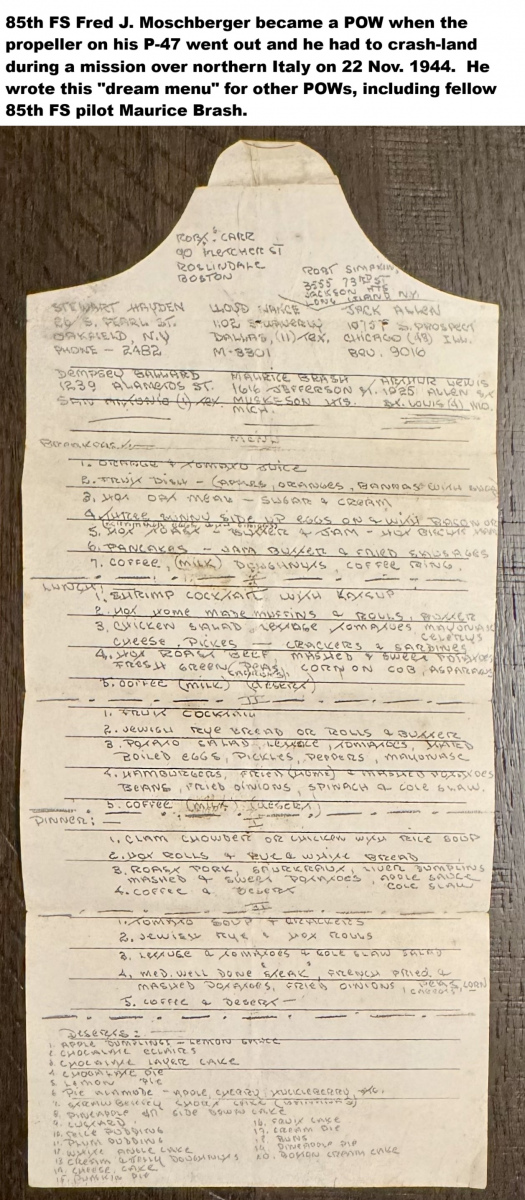 85th FS Fred J. Moschberger became a POW when the
propeller on his P-47 went out and he had to crash-land
during a mission over northern Italy on 22 Nov. 1944. He
wrote this "dream menu" for other POWs, including fellow
85th FS pilot Maurice Brash.
ROBT. CARR
90 FLETCHER ST
ROSLINDALE
BOSTON
ROBT SIMPKIN,
3555 73RD ST
JACKSON HTS
LONG ISLAND N.Y.
STEWART HAYDEN LLOYD JACK ALLEN
26 S. PEARL ST. 1102 S. PROSPECT
OAKFIELD, N.Y DALLAS, (11) TEX. CHICAGO (43) ILL.
PHONE - 2482 M-8301 BEV. 9016
DEMPSEY BALLARD MAURICE BRASH ARTHUR LEWIS
1239 ALAMETOS ST. 1616 JEFFERSON ST. 1925 ALLEN
SAN ANTONIO (1) TEX MUSKEGON HTS. ST. LOUIS (4) MO.
MICH.
MENU
BREAKFAST:
1. ORANGE & TOMATO JUICE
2. FRUIT DISH - (APPLES, ORANGES, BANNAS WITH
3. HOT OAT MEAL - SUGAR & CREAM
4. THREE SUNNY SIDE UP EGGS ON & WITH BACON OR
5. HOT TOAST - BUTTER & JAM - HOT
6. PANCAKES - JAM BUTTER & FRIED SAUSAGES
7. COFFEE, (MILK) DOUGHNUTS, COFFEE RING.
I
LUNCH:
1. SHRIMP COCKTAIL WITH KATSUP
2. HOT HOME MADE MUFFINS & ROLLS, BUTTER
3. CHICKEN SALAD, LETTUCE TOMATOES MAYONAISE
CELERYS
CHEESE, PICKES - CRACKERS & SARDINES
4. HOT ROAST BEEF MASHED & SWEET POTATOES
FRESH GREEN PEAS, CORN ON COB, ASPARAGUS
5. COFFEE (MILK) (DESERT)
II
1. FRUIT COCKTAIL
2. JEWISH RYE BREAD OR ROLLS & BUTTER
3. POTATO SALAD, LETTUCE, TOMATOES, HARD
BOILED EGGS, PICKLES, PEPPERS, MAYONASE
4. HAMBURGERS, FRIED (HOME) & MASHED POTATOES
BEANS, FRIED OINIONS, SPINACH & COLE SLAW.
5. COFFEE (MILK) (DESERT)
DINNER: I
1. CLAM CHOWDER OR CHICKEN WITH RICE SOUP
2. HOT ROLLS & RYE & WHITE BREAD
3. ROAST PORK, SAURKRAUT, LIVER DUMPLINS
MASHED & SWEET POTATOES, APPLE SAUCE
COLE SLAW
4. COFFEE & DESERT
II
1. TOMATO SOUP & CRACKERS
2. JEWISH RYE & HOT ROLLS
3. LETTUCE & TOMATOES & COLE SLAW SALAD
4. MED. WELL DONE STEAK, FRENCH FRIED &
MASHED POTATOES, FRIED OINIONS, PEAS, CORN
CARROTS
5. COFFEE & DESERT -
DESERTS:
1. APPLE DUMPLINGS - LEMON SAUCE
2. CHOCALATE ECLAIRS
3. CHOCALATE LAYER CAKE
4. CHOCALATE PIE
5. LEMON PIE
6. PIE ALAMODE - APPLE, CHERRY, HUCKLEBERRY, ETC.
7. STRAWBERRY SHORT CAKE
8. PINEAPPLE UP SIDE DOWN CAKE
9. CUSTARD
10. RICE PUDDING
11. PLUM PUDDING
12. WHITE ANGLE CAKE
13. CREAM & JELLY DOUGHNUTS
14. CHEESE CAKE
15. PUMKIN PIE
16. FRUIT CAKE
17. CREAM PIE
18. BUNS
19. PINEAPPLE PIE
20. BOSTON CREAM CAKE